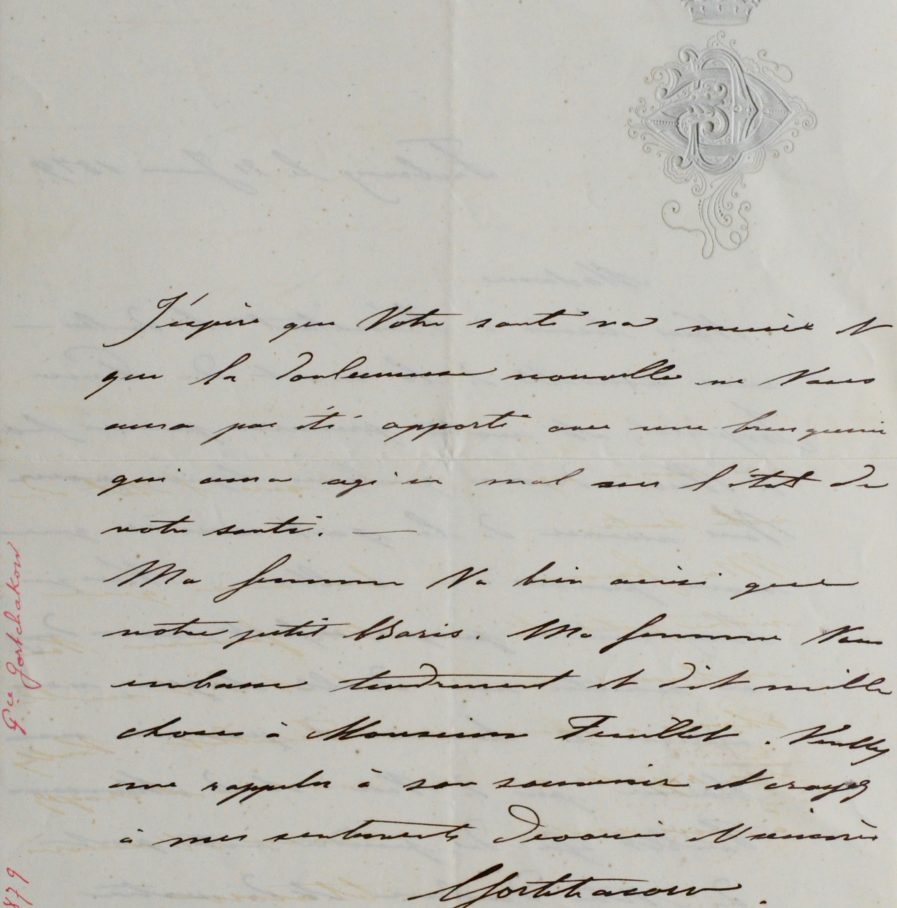 J'espère que Votre santé va mieux et
que la douloureuse nouvelle ne Vous
aura pas été apporté avec une brusquerie
qui aura agi en mal sur l'état de
votre santé. —
Ma femme Va bien ainsi que
notre petit Boris. Ma femme Vous
embrasse tendrement et dit mille
choses à Monsieur Feuillet. Veuillez
me rappeler à son souvenir et croyez
à mes sentiments dévoués et sincères
Gortchacow.
Pce Gortchakow
879